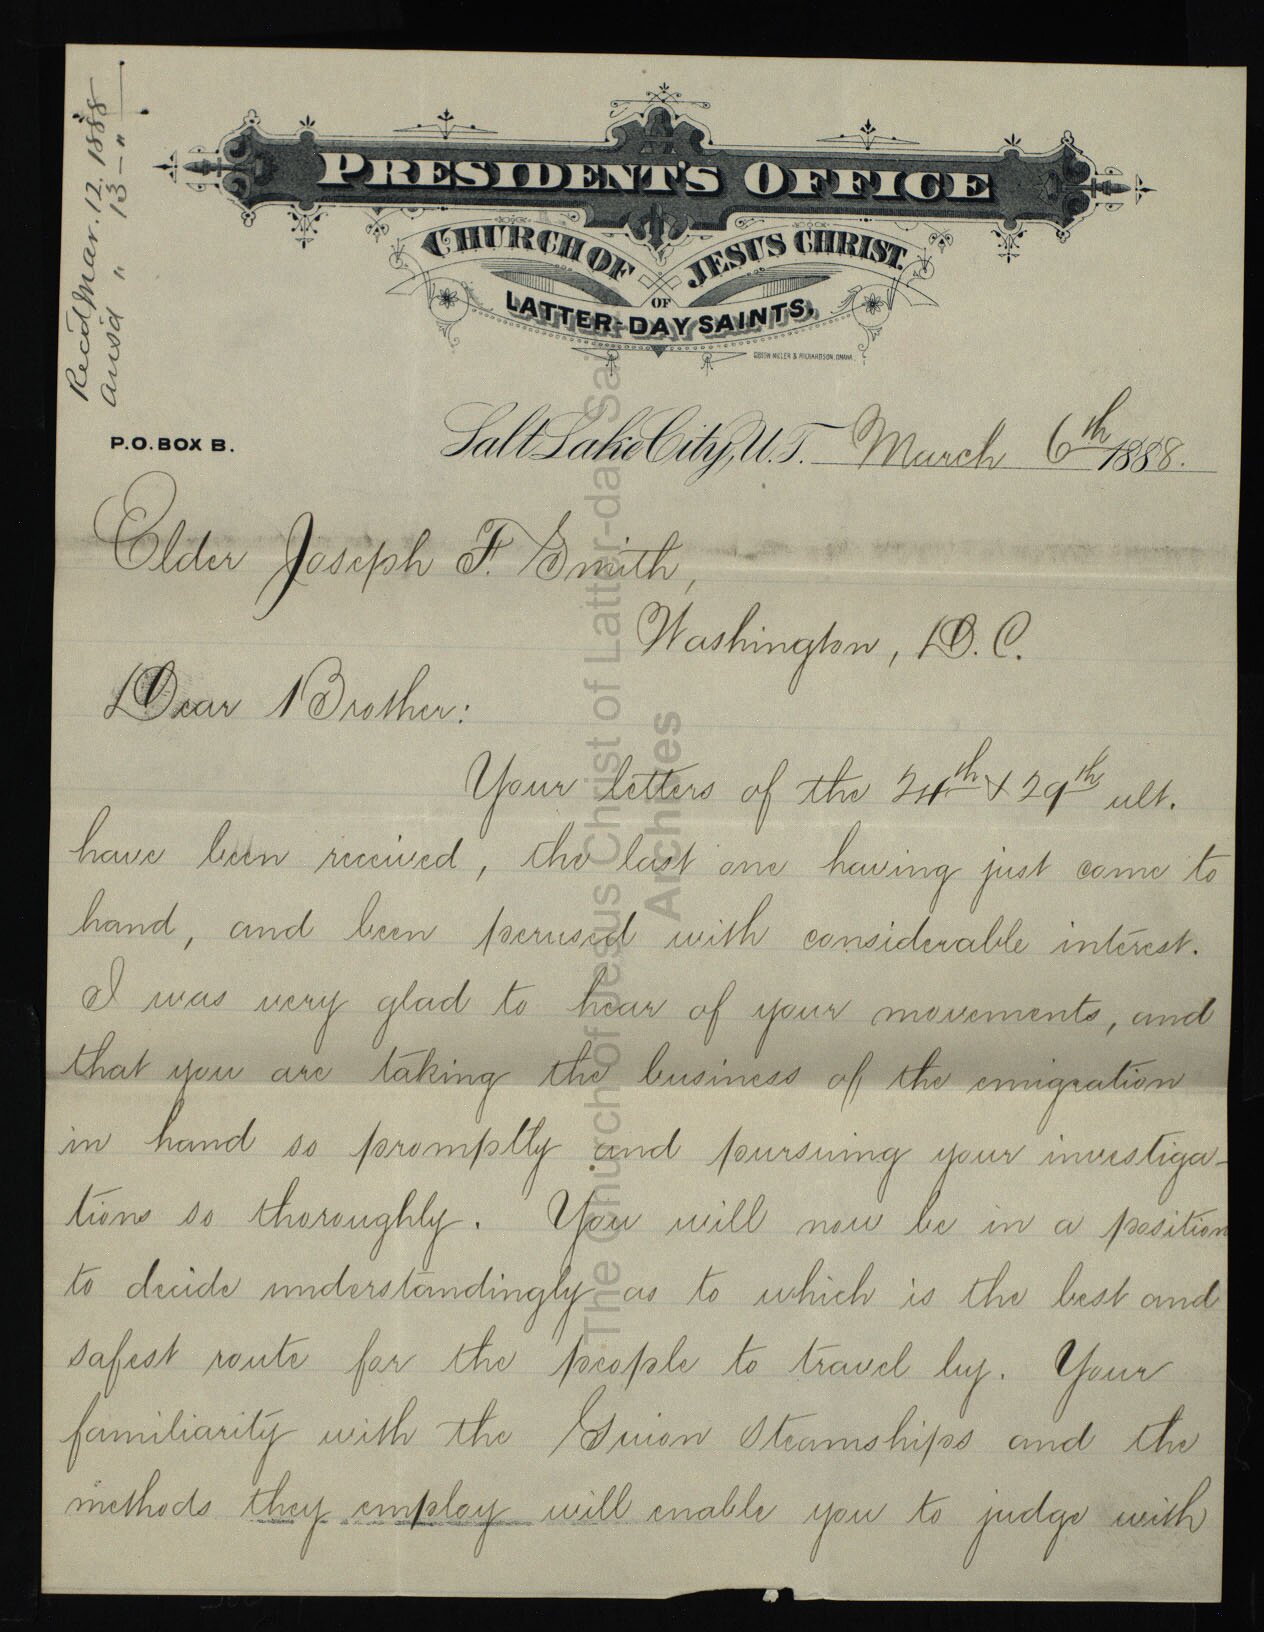 Recd Mar. 12. 1888
ans'd " 13 — "
PRESIDENT'S OFFICE
CHURCH OF JESUS CHRIST
OF
LATTER-DAY SAINTS,
GIBSON MILLER & RICHARDSON, OMAHA.
P.O. BOX B.
Salt Lake City, U.T. March 6th 1888.
Elder Joseph F. Smith,
Washington, D.C.
Dear Brother:
Your letters of the 24th & 29th ult.
have been received, the last one having just come to
hand, and been perused with considerable interest.
I was very glad to hear of your movements, and
that you are taking the business of the emigration
in hand so promptly and pursuing your investiga-
tions so thoroughly. You will now be in a position
to decide understandingly as to which is the best and
safest route for the people to travel by. Your
familiarity with the Guion Steamships and the
methods they employ will enable you to judge with
The Church of Jesus Christ of Latter-day Sai
Archives